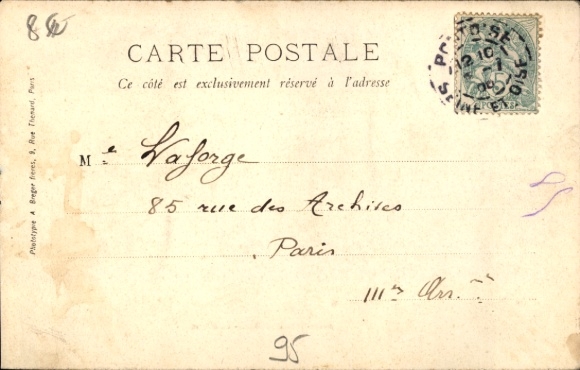 CARTE POSTALE
Ce côté est exclusivement réservé à l'adresse
PONTOISE
SEINE ET OISE
Mle Laforge
85 rue des Archives
Paris
IIIme Arr.nt
Phototypie A. Breger frères, 9, Rue Thénard, Paris
95